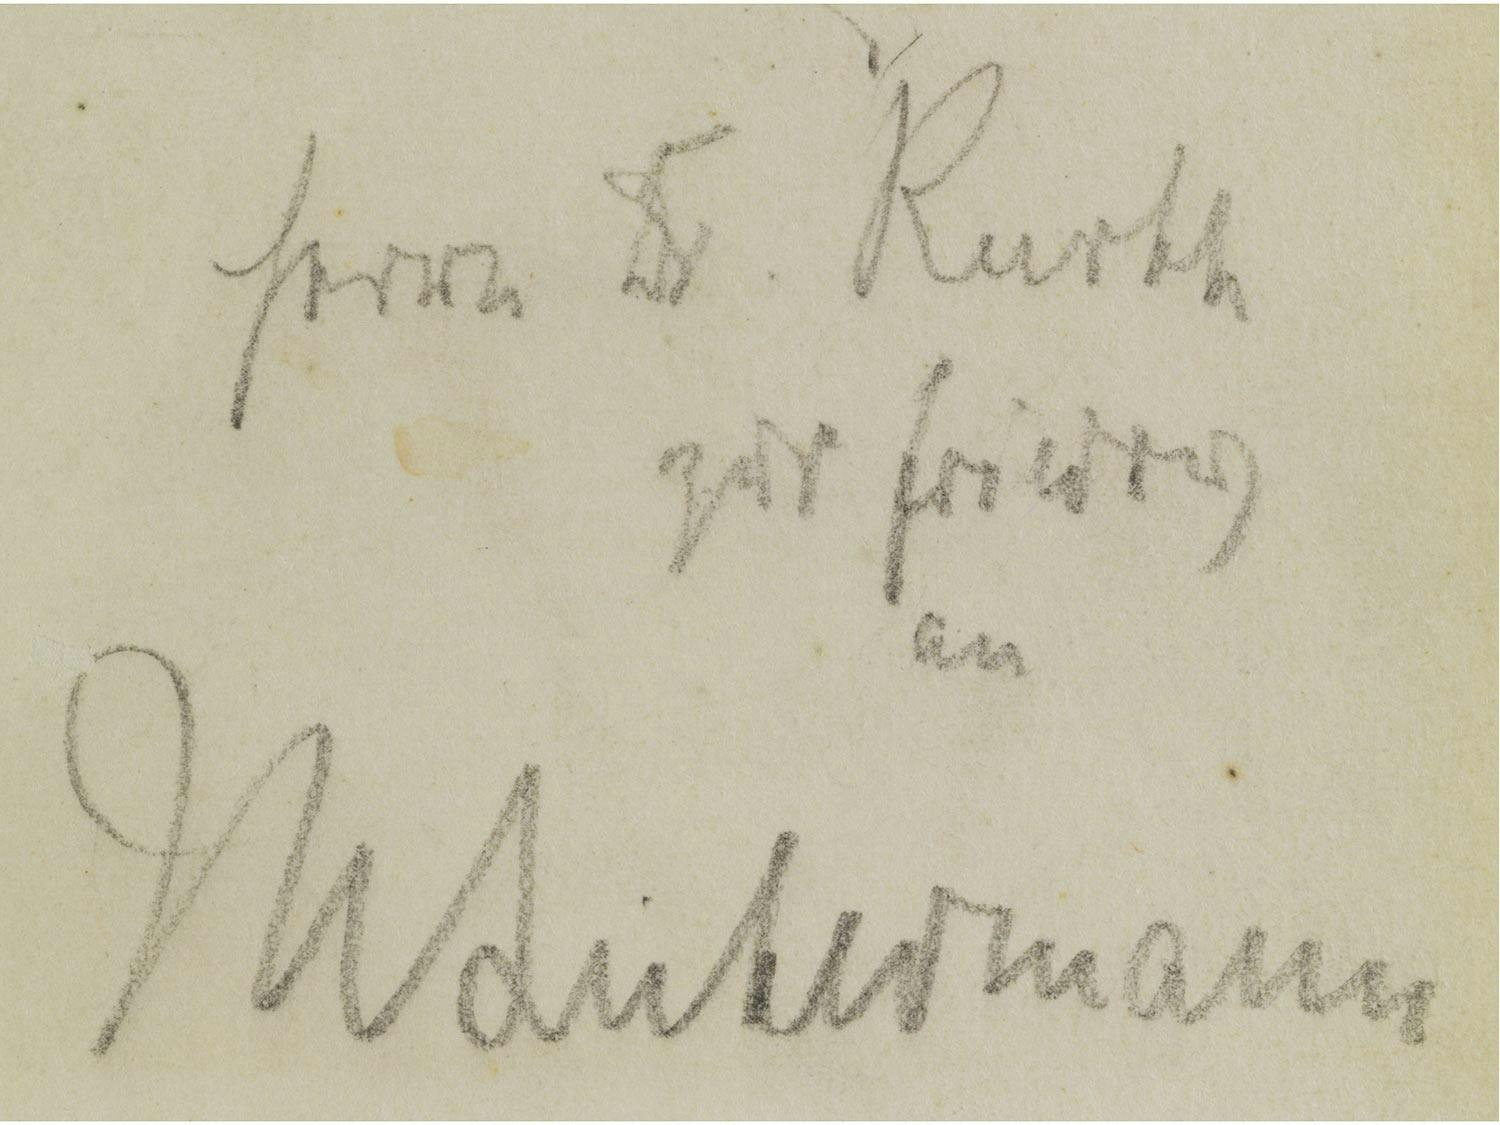 Herrn Dr. Kurth
zur Erinnerung
an
MLiebermann